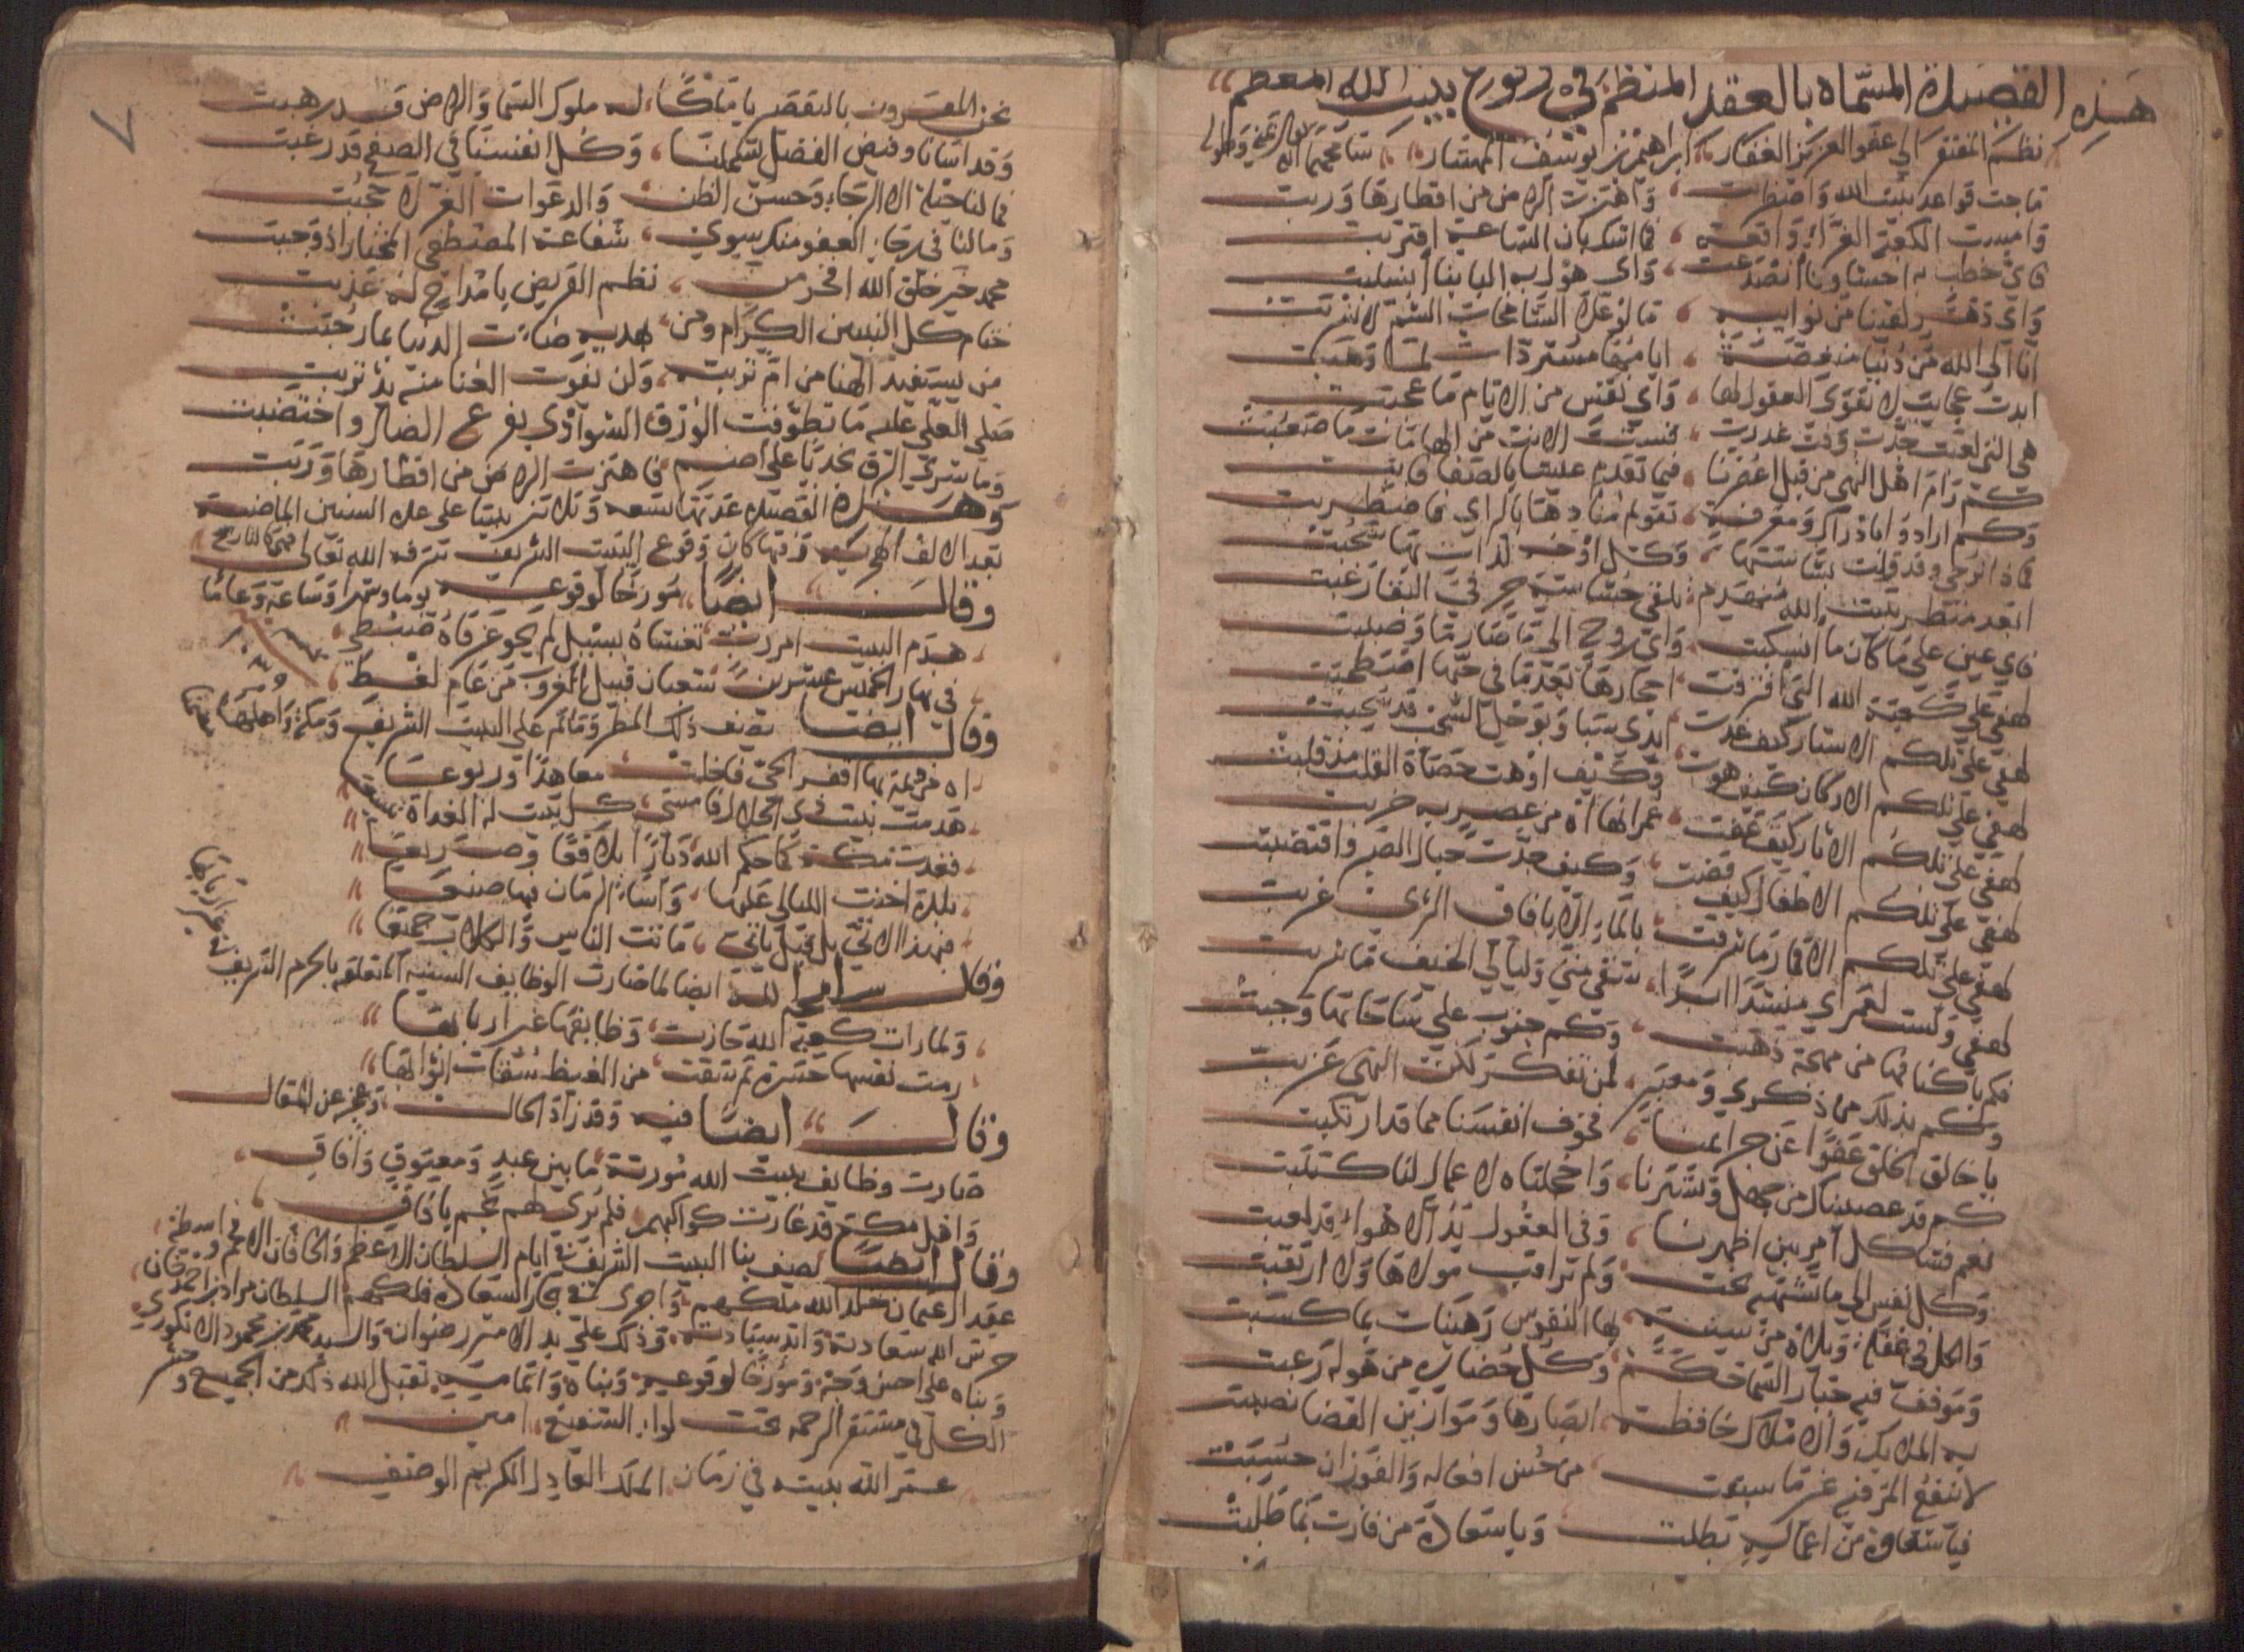 هذه القصيدة المسماه بالعقد المنظم في وقوع بيت الله المعظم
نظم المفتقر الي عفو العزيز الغفار ابراهيم بن يوسف المهتار سامحهما الله
ماجت قواعد بيت الله واضطربت واهتزت الارض من اقطارها وربت
وامست الكعبة الغراء واقعة فما اشك بان الساعة اقتربت
فاي خطب به احشاونا انصدعت واي هول به البابنا انسلبت
واي دهر لقينا من نوايبه ما لو علا الشامخات الشم لانتربت
انا الي الله من دنيا منغصة ايامها مستردات لما وهبت
ابدت عجايب لا تقوي العقول لها واي نفس من الايام ما عجبت
هي التي لعبت جدت وفت غدرت
كم رام اهل النهي من قبل اعصرنا فيما تقدم علينا بالصفا فابت
وكم اراد واباذراك ومعرفة تقويم مناد هتا بالراي فاضطربت
فماذا نرجي وقد ولت بشاشتها وكل اوجه لذات بها شحبت
ابعد منظر بيت الله منهدم يلقي حشاشة حر في البقا رغبت
فاي عين علي ما كان ما انسكبت واي روح الي ما صار ما وصلبت
لهفي علي كعبة الله التي افترقت احجارها بعدما في ضمها اصطحبت
لهفي علي تلكم الاستار كيف غدت ايدي سبا وبوحل السحب قد سحبت
لهفي علي تلكم الاركان كيف هوت وكيف اوهت حصاة القلب مذ قلبت
لهفي علي تلكم الاثار كيف عفت عمرانها اه من عصر به خربت
لهفي علي تلكم الاطفال كيف قضت وكيف جدت حبال الصبر واقتضبت
لهفي علي تلكم الاقمار ما شرقت بالماء الا بافاق الثري غربت
لهفي ولست لعمراي منشدا ابدا سقي مني وليالي الخيف ما شربت
فكم بابكنا فيها من مهجة ذهبت وكم جنوب علي ساحاتها وجبت
وكم بذلك من ذكري ومعتبر لمن تفكر لكن النهي عزبت
يا خالق الخلق عفوا عن جرايمنا فخوف انفسنا مما قد ارتكبت
كم قد عصيناك من جهل وتسترنا واخجلتاه لاعمال لنا كتبت
نعم فشا كل امر بين اظهرنا وفي العقول يد الاهواء قد لعبت
وكل نفس الي ما تشتهيه نحت ولم تراقب مولاها ولا ارتقبت
والكل في غفلة ويلاه من سنة لها النفوس رهينات بما كسبت
وموقف فيه جبار السما حكم وكل حضاره من هوله رعبت
به الملايك والاملاك خافظة ابصارها وموازين القضا نصبت
لا ينفع المرء فيه غير ما سبقت من حسن افعاله والفوز ان حسبت
فيا شقاوة من اعماله بطلت ويا سعادة من فازت بما طلبت
نحن المقرون بالتقصير يا ملكا له ملوك السما والارض قد رهبت
وقد اتينا وفيض الفضل يشملنا وكل انفسنا في الصفح قد رغبت
فما لنا حيلة الا الرجاء وحسن الظن والدعوات الغر لا حجبت
وما لنا في رجاء العفو منك سوي شفاعة المصطفي المختار اذ وجبت
محمد خير خلق الله افخر من نظم القريض بامداح له عذبت
ختام كل النبيين الكرام ومن بهديه ضاءت الدنيا بما رحبت
من يستفيد الهنا من ام تربته ولن يفوت الغنا منه يدا تربت
صلي العلي عليه ما تطوفت الورق الشوادي بفرع الضال واختضبت
وما سري البرق نجديا علي اضم فاهتزت الارض من اقطارها وربت
وهذه القصيده عدتها تسعه وثلاثين بيتا علي عدد السنين الماضية
بعد الالف الهجريه وفيها كان وقوع البيت الشريف شرفه الله تعالي فهي كالتاريخ
وقال ايضا مورخا لوقوعه يوما وشهرا وساعة وعاما
هدم البيت امر رب تغشاه بسيل لم يحو عزفاه ضبطي
في نهار الخميس عشرين شعبان قبيل الغروب من عام لغط
١٠٣٩
وقال ايضا يصف ذلك المطر وما تم علي البيت الشريف ومكة واهلها
اه من ديمة بها اقفر الحي فاخلت معاهدا وربوعا
هدمت بيت ذي الجلال فامسي كل بيت له الغداة
فغدت مكة كما حكم الله ديارا بلاقعا وصريعا
بلدة اخنت الليالي عليها واساء الزمان فيها صنيعا
فبهذا الانحي بل قبل ياتي ماتت الناس والكلاب جميعا
وقال سامحه الله ايضا لما صارت الوظايف السنيه المتعلقه بالحرم الشريف
في غير اربابها
ولما رات كعبة الله حازت وظايفها غير اربابها
رمت نفسها حسرة ثم شقت من الغيظ شقات اثوابها
وقال ايضا فيه وقد زاد الحال وعجز عن المقال
صارت وظايف بيت الله مورثة ما بين عبد ومعتوق وافاقي
واهل مكة قد غارت كواكبهم فلم نري لهم نجم بافاق
وقال ايضا يصف بنا البيت الشريف في ايام السلطان الاعظم والخاقان الافخم واسطة
عقد ال عثمان خلد الله ملكهم واجري في بحار السعادة فلكهم السلطان مراد بن احمد خان
حرس الله سعادته وابد سيادته وذلك علي يد الامير رضوان والسيد محمد بن محمود الانكوري
وبناه علي احسن وجه ومورخا لوقوعه وبناه واتمامه تقبل الله ذلك من الجميع وحشر
الكل في مستقر الرحمه تحت لواء الشفيع امين
عمر الله بيته في زمان الملك العادل الكريم الوصيف